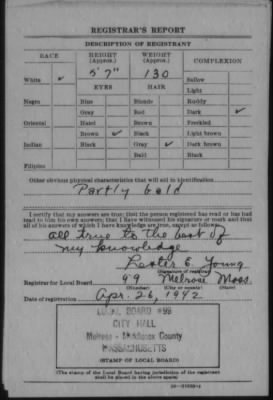 REGISTRAR'S REPORT
DESCRIPTION OF REGISTRANT
RACE HEIGHT (Approx.) WEIGHT (Approx.) COMPLEXION
White ✓ 5' 7" 130 Sallow
EYES HAIR Light
Negro Blue Blonde Ruddy
Gray Red Dark ✓
Oriental Hazel Brown Freckled
Brown ✓ Black Light brown
Indian Black Gray ✓ Dark brown
Bald Black
Filipino
Other obvious physical characteristics that will aid in identification
Partly bald
I certify that my answers are true; that the person registered has read or has had
read to him his own answers; that I have witnessed his signature or mark and that
all of his answers of which I have knowledge are true, except as follows:
all true to the best of
my knowledge
Lester E. Young
(Signature of registrar)
Registrar for Local Board 99 Melrose Mass.
(Number) (City or county) (State)
Date of registration Apr. 26, 1942
LOCAL BOARD #99
CITY HALL
Melrose - Middlesex County
MASSACHUSETTS
(STAMP OF LOCAL BOARD)
(The stamp of the Local Board having jurisdiction of the registrant
shall be placed in the above space)